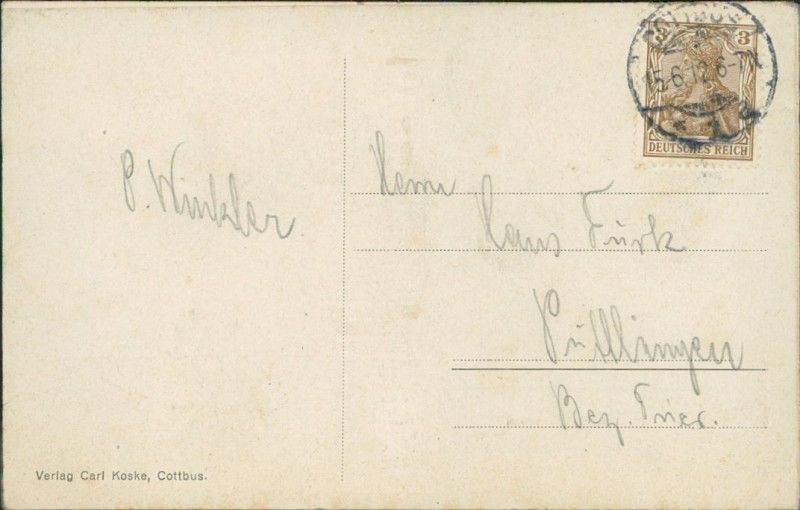 P. Winkler
Herrn
Hans Türk
Püttlingen
Bez. Trier.
Verlag Carl Koske, Cottbus.
3 3
DEUTSCHES REICH
15.6.12.6-7N